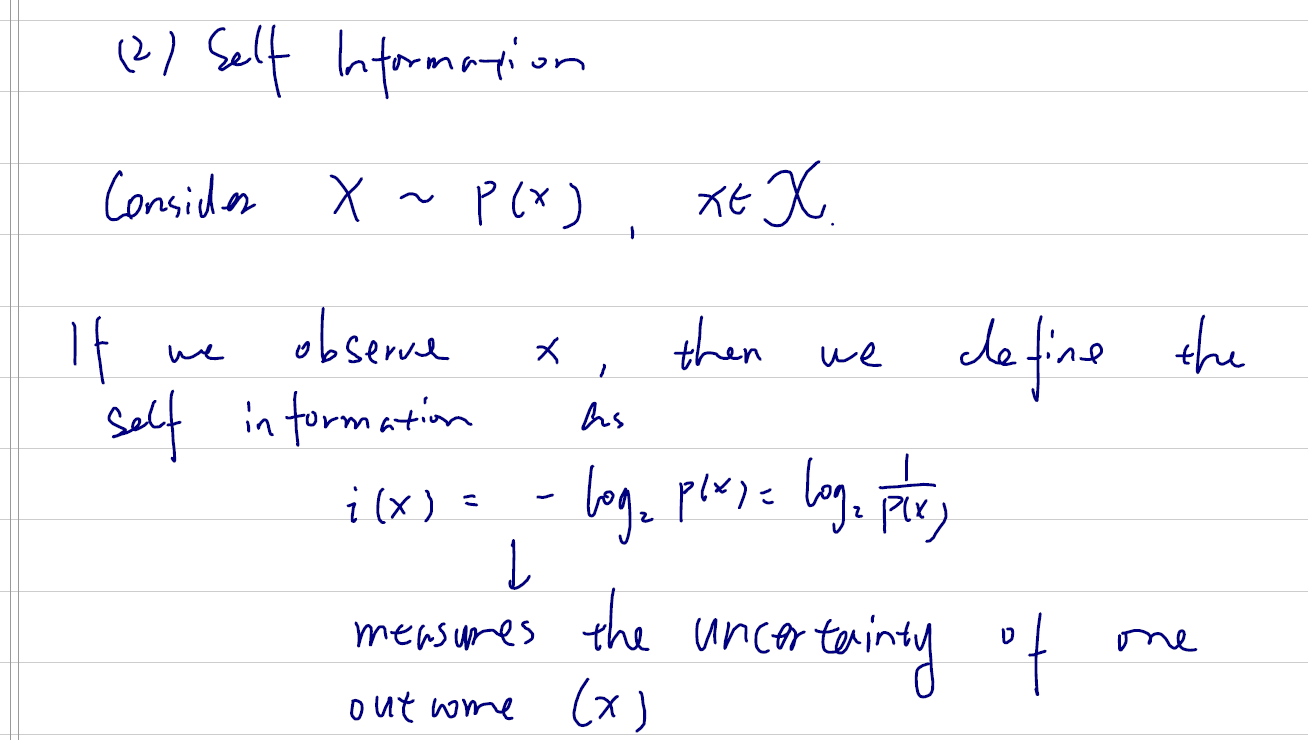 (2) Self Information
Consider X ~ P(x), x∈𝒳.
If we observe x, then we define the
self information as
i(x) = - log₂ p(x) = log₂ 1/P(x)
↓
measures the uncertainty of one
outcome (x)